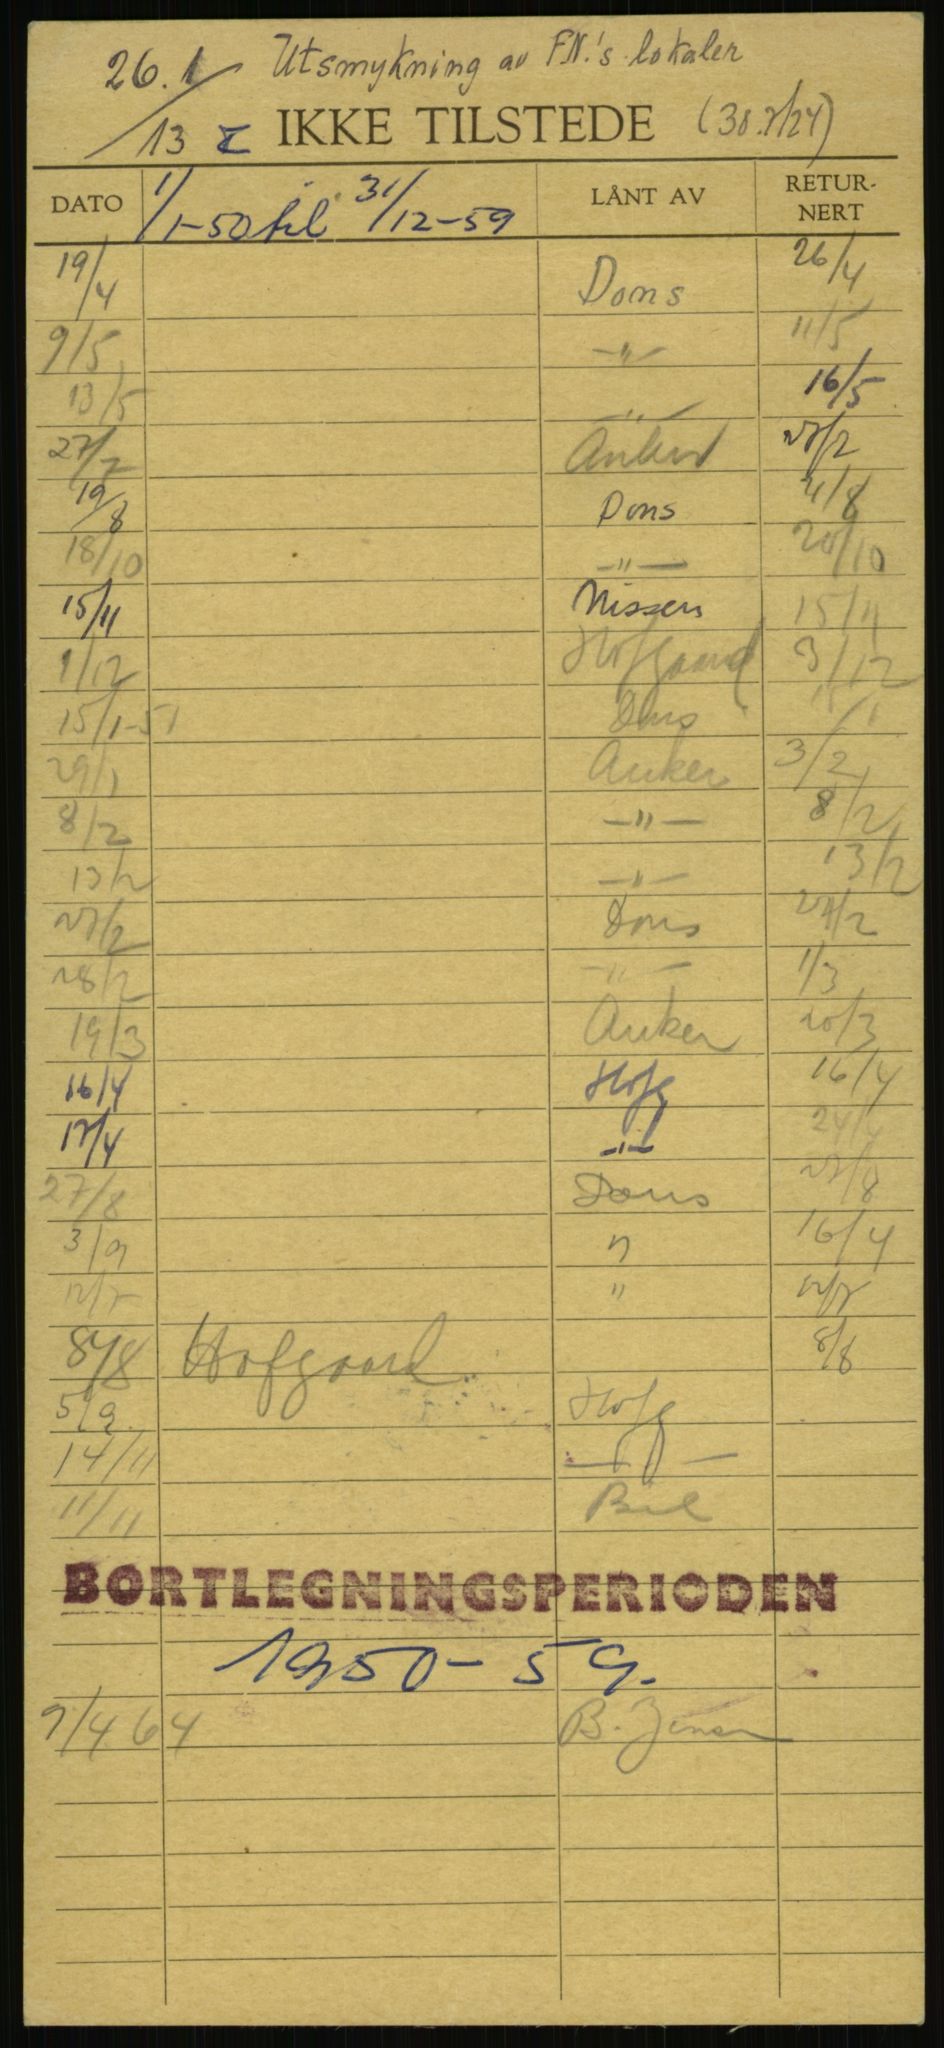 26.1/13 I Utsmykning av F.N.'s lokaler
IKKE TILSTEDE (30.7/24)
DATO 1/1-50 til 31/12-59 LÅNT AV RETUR-NERT
19/4 Dons 26/4
9/5 -"- 11/5
13/5 -"- 16/5
27/7
19/8 Dons 21/8
18/10 -"- 20/10
15/11 Nissen 15/11
1/12 Hofgaard 3/12
15/1-51 Dons
29/1 Anker 3/2
8/2 -"- 8/2
13/2 -"- 13/2
27/2 Dons 27/2
28/2 -"- 1/3
19/3 Anker 20/3
16/4 Hofg 16/4
17/4 -"- 24/4
27/8 Dons 27/8
3/9 " 16/4
12/7 " 12/7
8/8 Hofgaard 8/8
5/9 Hofg
14/11 -"-
11/11
BORTLEGNINGSPERIODEN
1950-59.
9/4 64 B. Jensen